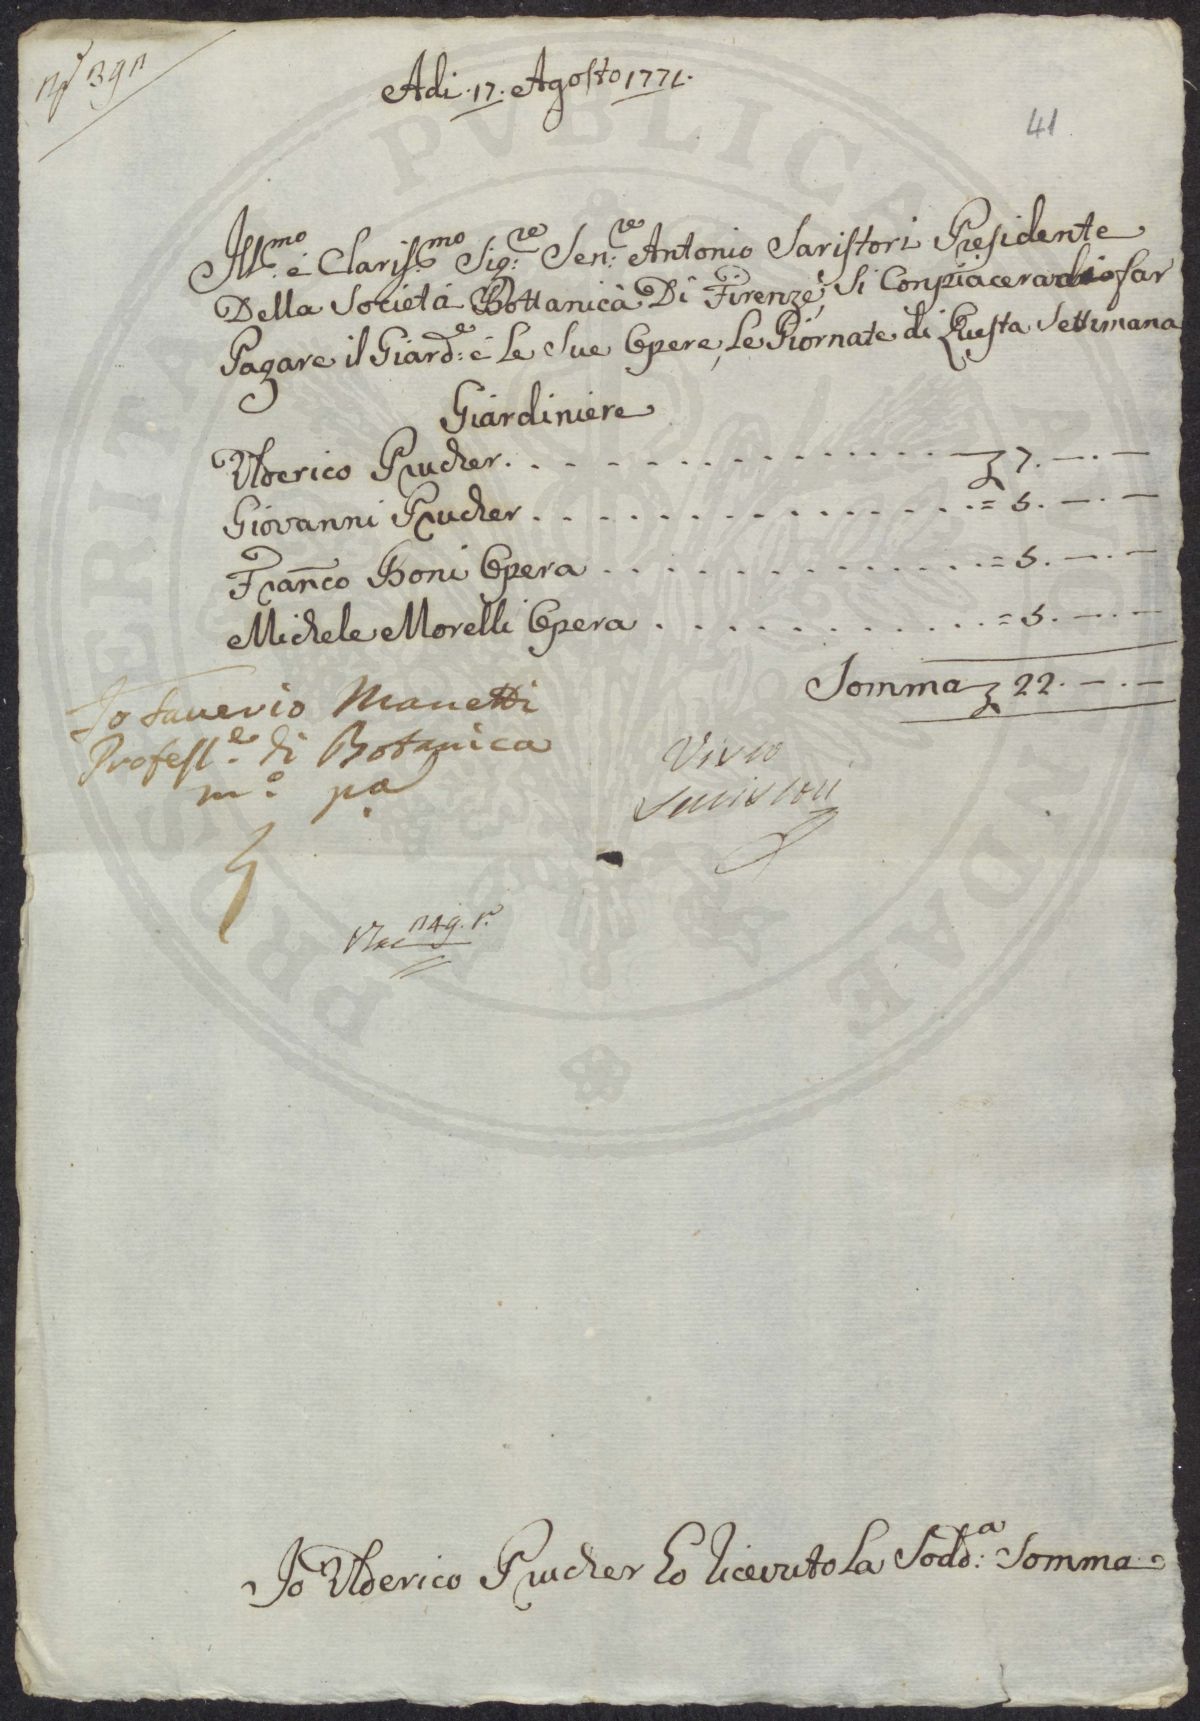 Adi. 17. Agosto 1771.
41
Ill.mo é Claris.mo Sig.re Sen.re Antonio Saristori Presidente
Della Societá Bottanica Di Firenze, Si Conpiacera far
Pagare il Giard.e é Le Sue Opere, Le Giornate di Questa Settimana
Giardiniere
Ulderico Prucher. . . . . . . . . . . . . . 7. —. —
Giovanni Prucher . . . . . . . . . . . . . = 5. —. —
Franco Boni Opera . . . . . . . . . . . . = 5. —. —
Michele Morelli Opera . . . . . . . . . . = 5. —. —
Somma 22. —. —
Io Saverio Manetti
Profess.e di Botanica
m.o pa
Visto
Saristori
Io Ulderico Prucher Ho Ricevuto La Sodd.a Somma
PROSPERITATI PVBLICAE